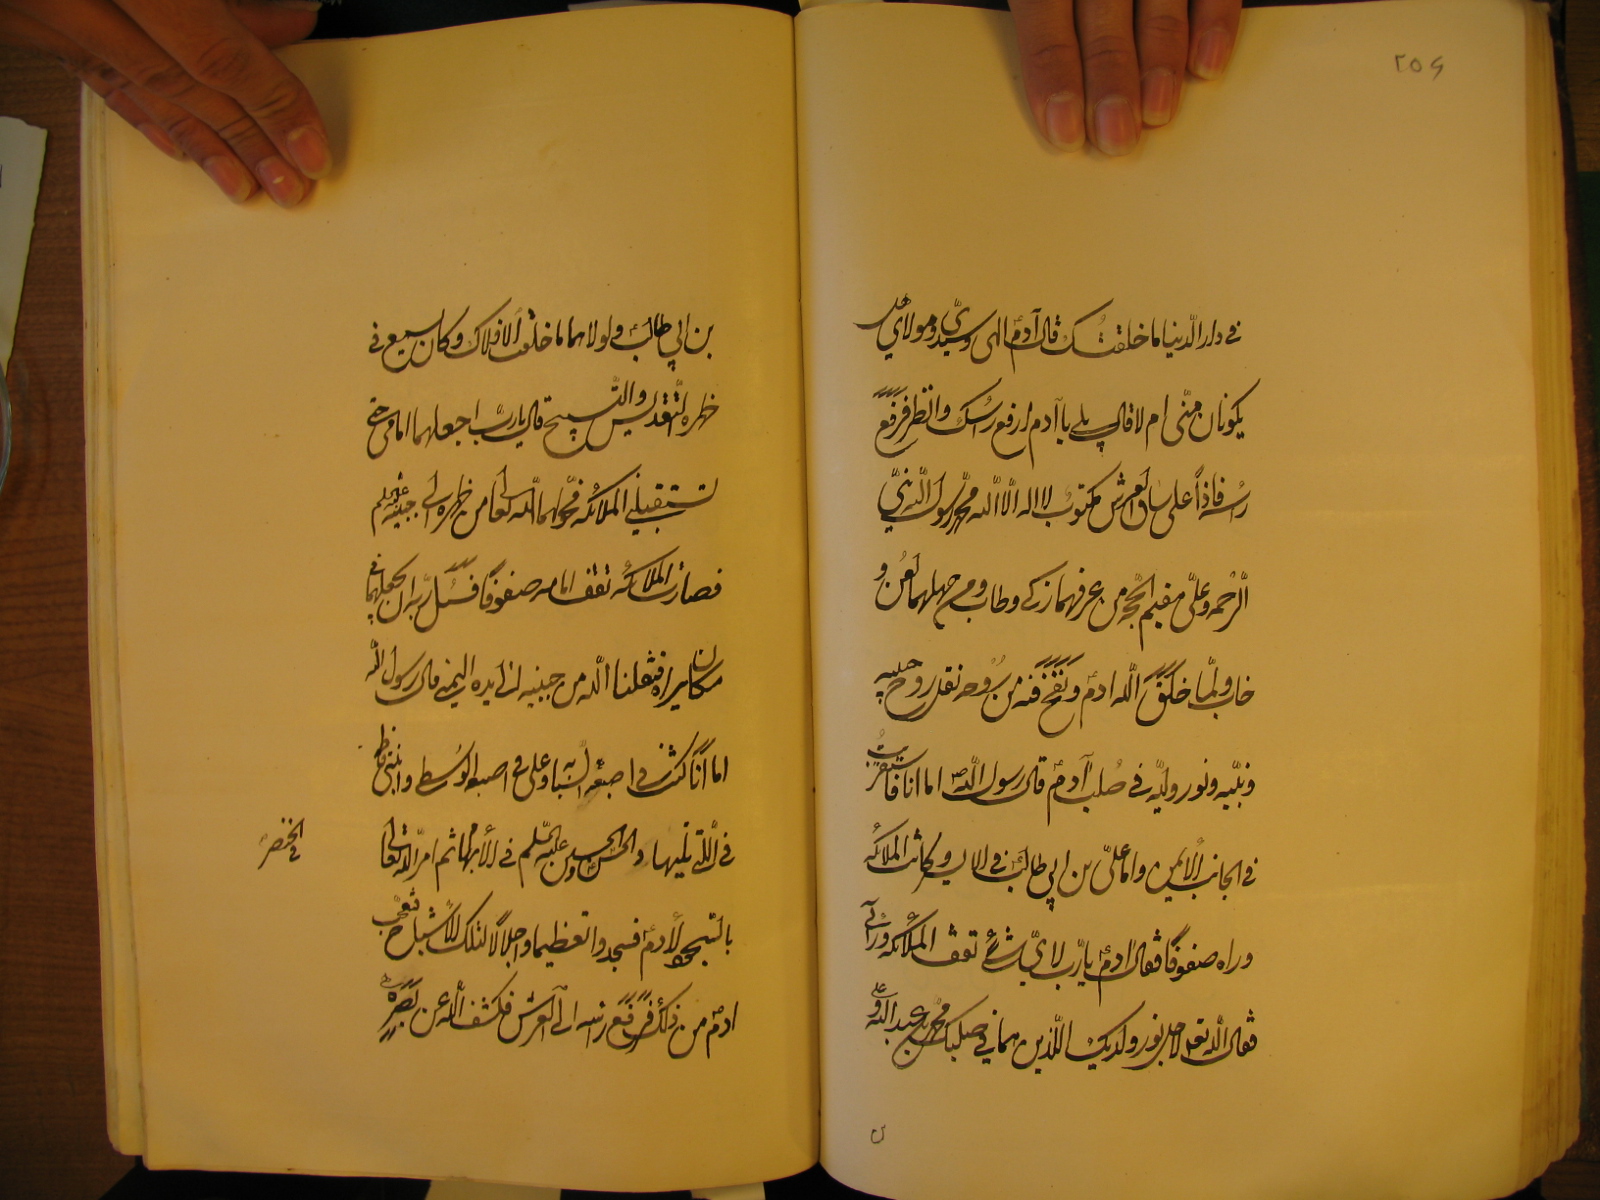 ٢٥٦
في دار الدنيا ما خلقتك قال آدمؑ الهى وسيّدي ومولاي هل
يكونان منّى ام لا قال بلى يا آدم ارفع راسك وانظر فرفع
رسه فاذاً على ساق العرش مكتوب لا اله الا الله محمد رسول الله نبيّ
الرّحمه وعليّ مقيم الحجّه من عرفهما زكى وطاب ومن جهلهما لعن و
خاب ولمّا خلق الله ادمؑ ونفخ فيه من روحه نقل روح حبيبه
ونبيّه ونور وليّه في صلب آدمؑ قال رسول الله ص اما انا فاستقريت
في الجانب الايمن واما عليّ بن ابي طالب في الايسر وكانت الملائكه
وراه صفوفاً فقال ادمؑ يا ربّ لايّ شئ تقف الملائكه ورائي
فقال الله تعه لاجل نور ولديك اللذين هما في صلبك محمد بن عبد الله وعلي
ن
بن ابي طالب ولولاهما ما خلقت الافلاك وكان يسمع في
ظهره التقديس والتسبيح قال يا ربّ اجعلهما امامى حتى
تستقبلني الملائكه فحولهما الله تعالى من ظهره الى جبينه
فصارت الملائكه تقف امامه صفوفاً فسئل ربه ان يجعلهما في
مكان يراه فنقلنا الله من جبينه الى يده اليمنى قال رسول الله
اما انا كنت في اصبعه السبابه وعلى في اصبعه الوسطى وابنتي فاطمه
في التي تليها والحسن في الخنصر والحسين عليهم السلم في الابهام ثم امر الله تعالى
بالسجود لادمؑ فسجدوا تعظيما واجلالا لتلك الاشباح فتعجب
ادمؑ من ذلك فرفع راسه الى العرش فكشف الله عن بصره